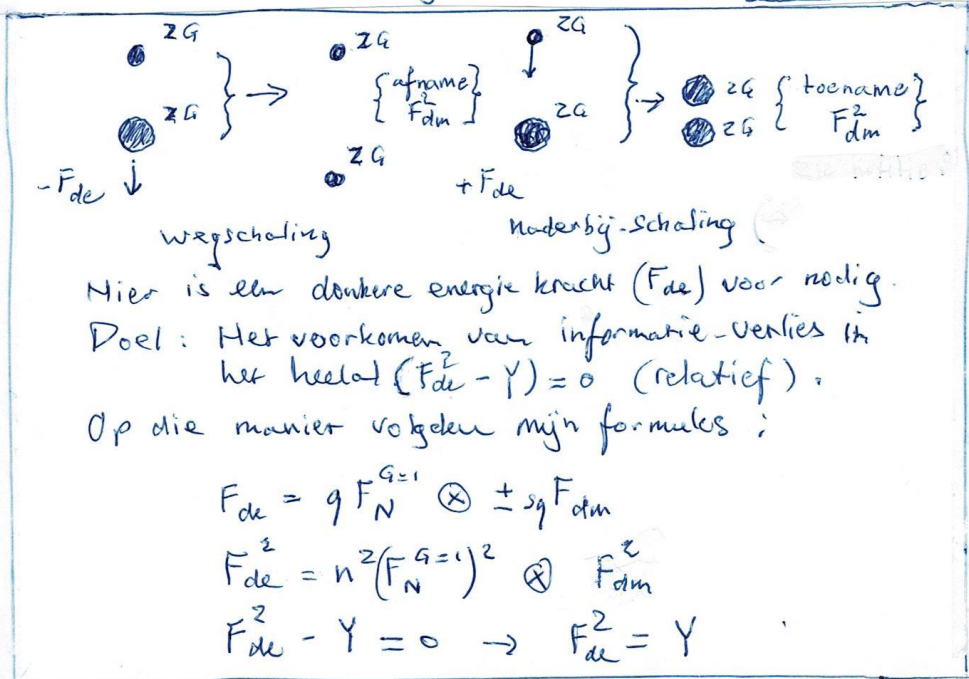 ZG ZG ZG
ZG {afname F²dm} ZG 2G {toename F²dm}
-Fde ZG +Fde 2G
wegschaling Naderbij-schaling
Hier is een donkere energie kracht (Fde) voor nodig.
Doel: Het voorkomen van informatie-verlies in
het heelal (F²de - Y) = 0 (relatief).
Op die manier volgden mijn formules:
Fde = q F_N^{G=1} ⊗ ± sq Fdm
F²de = n²(F_N^{G=1})² ⊗ F²dm
F²de - Y = 0 → F²de = Y